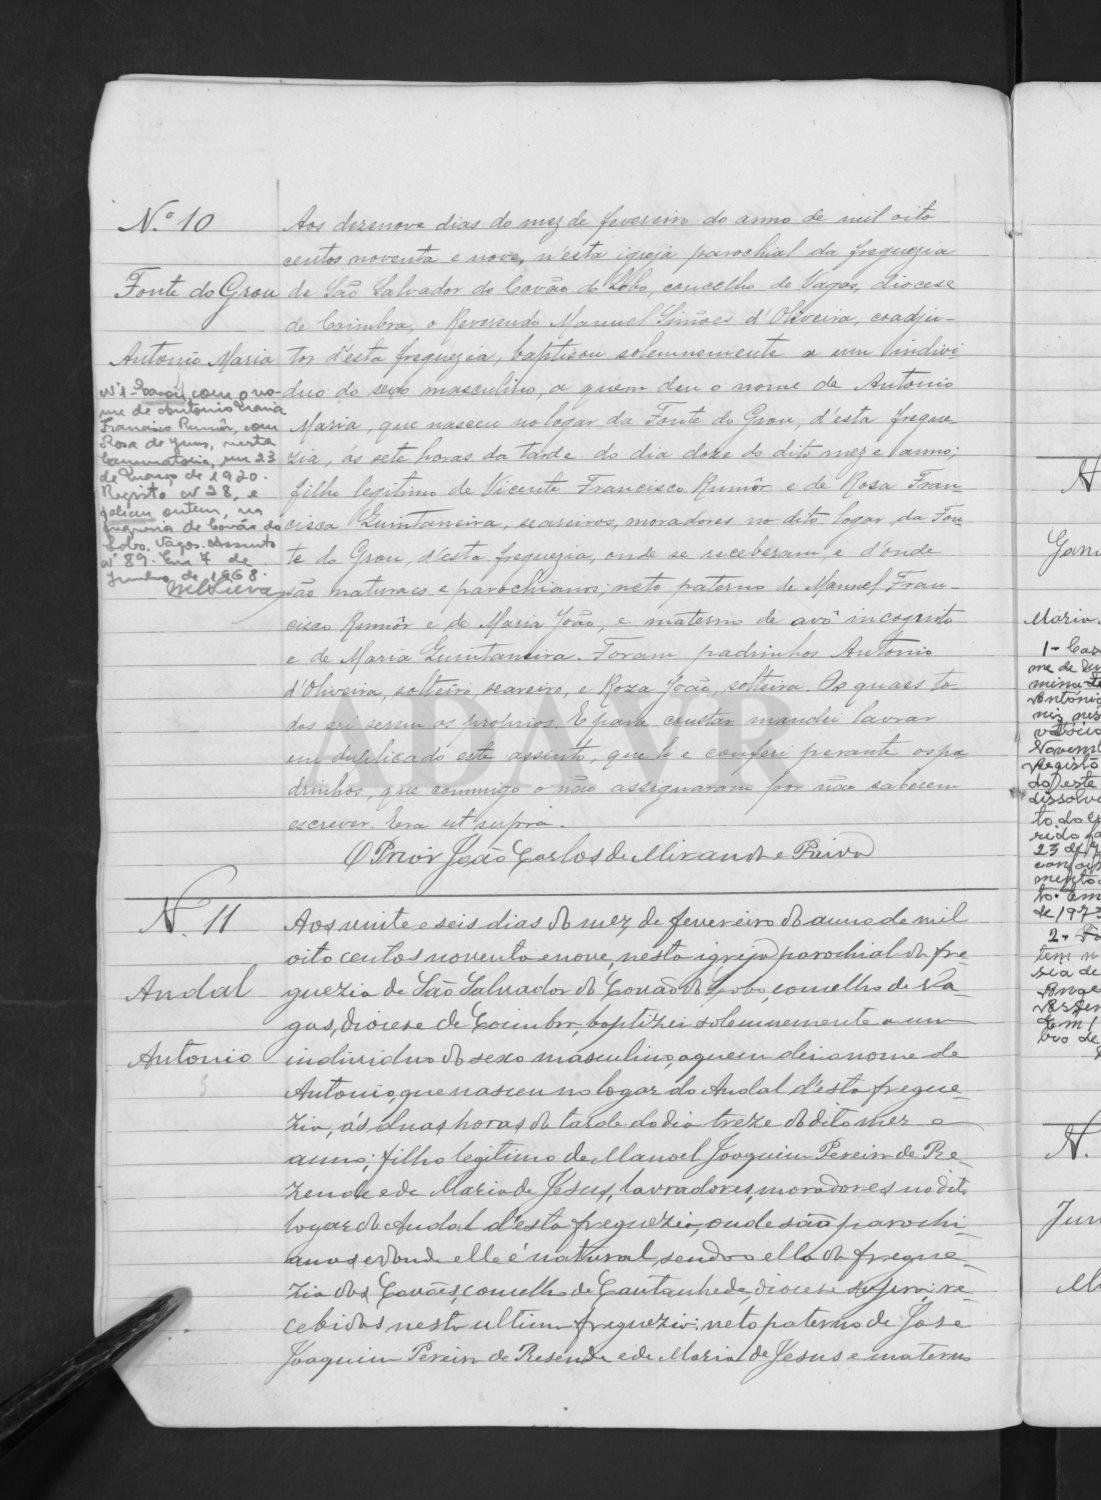 N.º 10
Fonte do Grou
Antonio Maria
Nº 1 - Casou com o no-
me de Antonio Maria
Francisco Rumôr, com
Rosa de Jesus, nesta
Conservatoria, em 23
de Março de 1920.
Registo nº 28, e
faleceu ontem, na
freguesia de Covão do
Lobo. Vagos. Assento
nº 89. Em 7 de
Junho de 1968.
Aos dezenove dias do mez de fevereiro do anno de mil oito
centos noventa e nove, n'esta igreja parochial da freguezia
de São Salvador do Covão do Lobo, concelho de Vagos, diocese
de Coimbra, o Reverendo Manuel Simões d'Oliveira, coadju-
tor d'esta freguezia, baptisou solemnemente a um indivi
duo do sexo masculino, a quem deu o nome de Antonio
Maria, que nasceu no logar da Fonte do Grou, d'esta fregue-
zia, ás sete horas da tarde do dia doze do dito mez e anno;
filho legitimo de Vicente Francisco Rumôr e de Rosa Fran-
cisca Quintaneira, seareiros, moradores no dito logar da Fon
te do Grou, d'esta freguezia, onde se receberam, e d'onde
são naturaes e parochianos; neto paterno de Manuel Fran-
cisco Rumôr e de Maria João, e materno de avô incognito
e de Maria Quintaneira. Foram padrinhos Antonio
d'Oliveira, solteiro, seareiro, e Roza João, solteira. Os quaes to-
dos sei serem os proprios. E para constar mandei lavrar
em duplicado este assento, que li e conferi perante os pa
drinhos, que commigo o não assignaram por não saberem
escrever. Era ut supra.
O Prior João Carlos de Miranda e Paiva
N. 11
Andal
Antonio
Aos vinte e seis dias do mez de fevereiro do anno de mil
oito centos noventa e nove, nesta igreja parochial da fre-
guezia de São Salvador do Covão do Lobo, concelho de Va-
gos, diocese de Coimbra, baptizei solemnemente a um
individuo do sexo masculino, a quem dei o nome de
Antonio, que nasceu no logar do Andal d'esta fregue-
zia, ás duas horas da tarde do dia treze do dito mez e
anno; filho legitimo de Manoel Joaquim Pereira de Re-
zende e de Maria de Jesus, lavradores, moradores no dito
logar do Andal d'esta freguezia, onde são parochi-
anos e donde elle é natural, sendo ella da fregue-
zia dos Covões, concelho de Cantanhede, diocese supra; re-
cebidos nesta ultima freguezia; neto paterno de José
Joaquim Pereira de Resende e de Maria de Jesus e materno
ADAVR